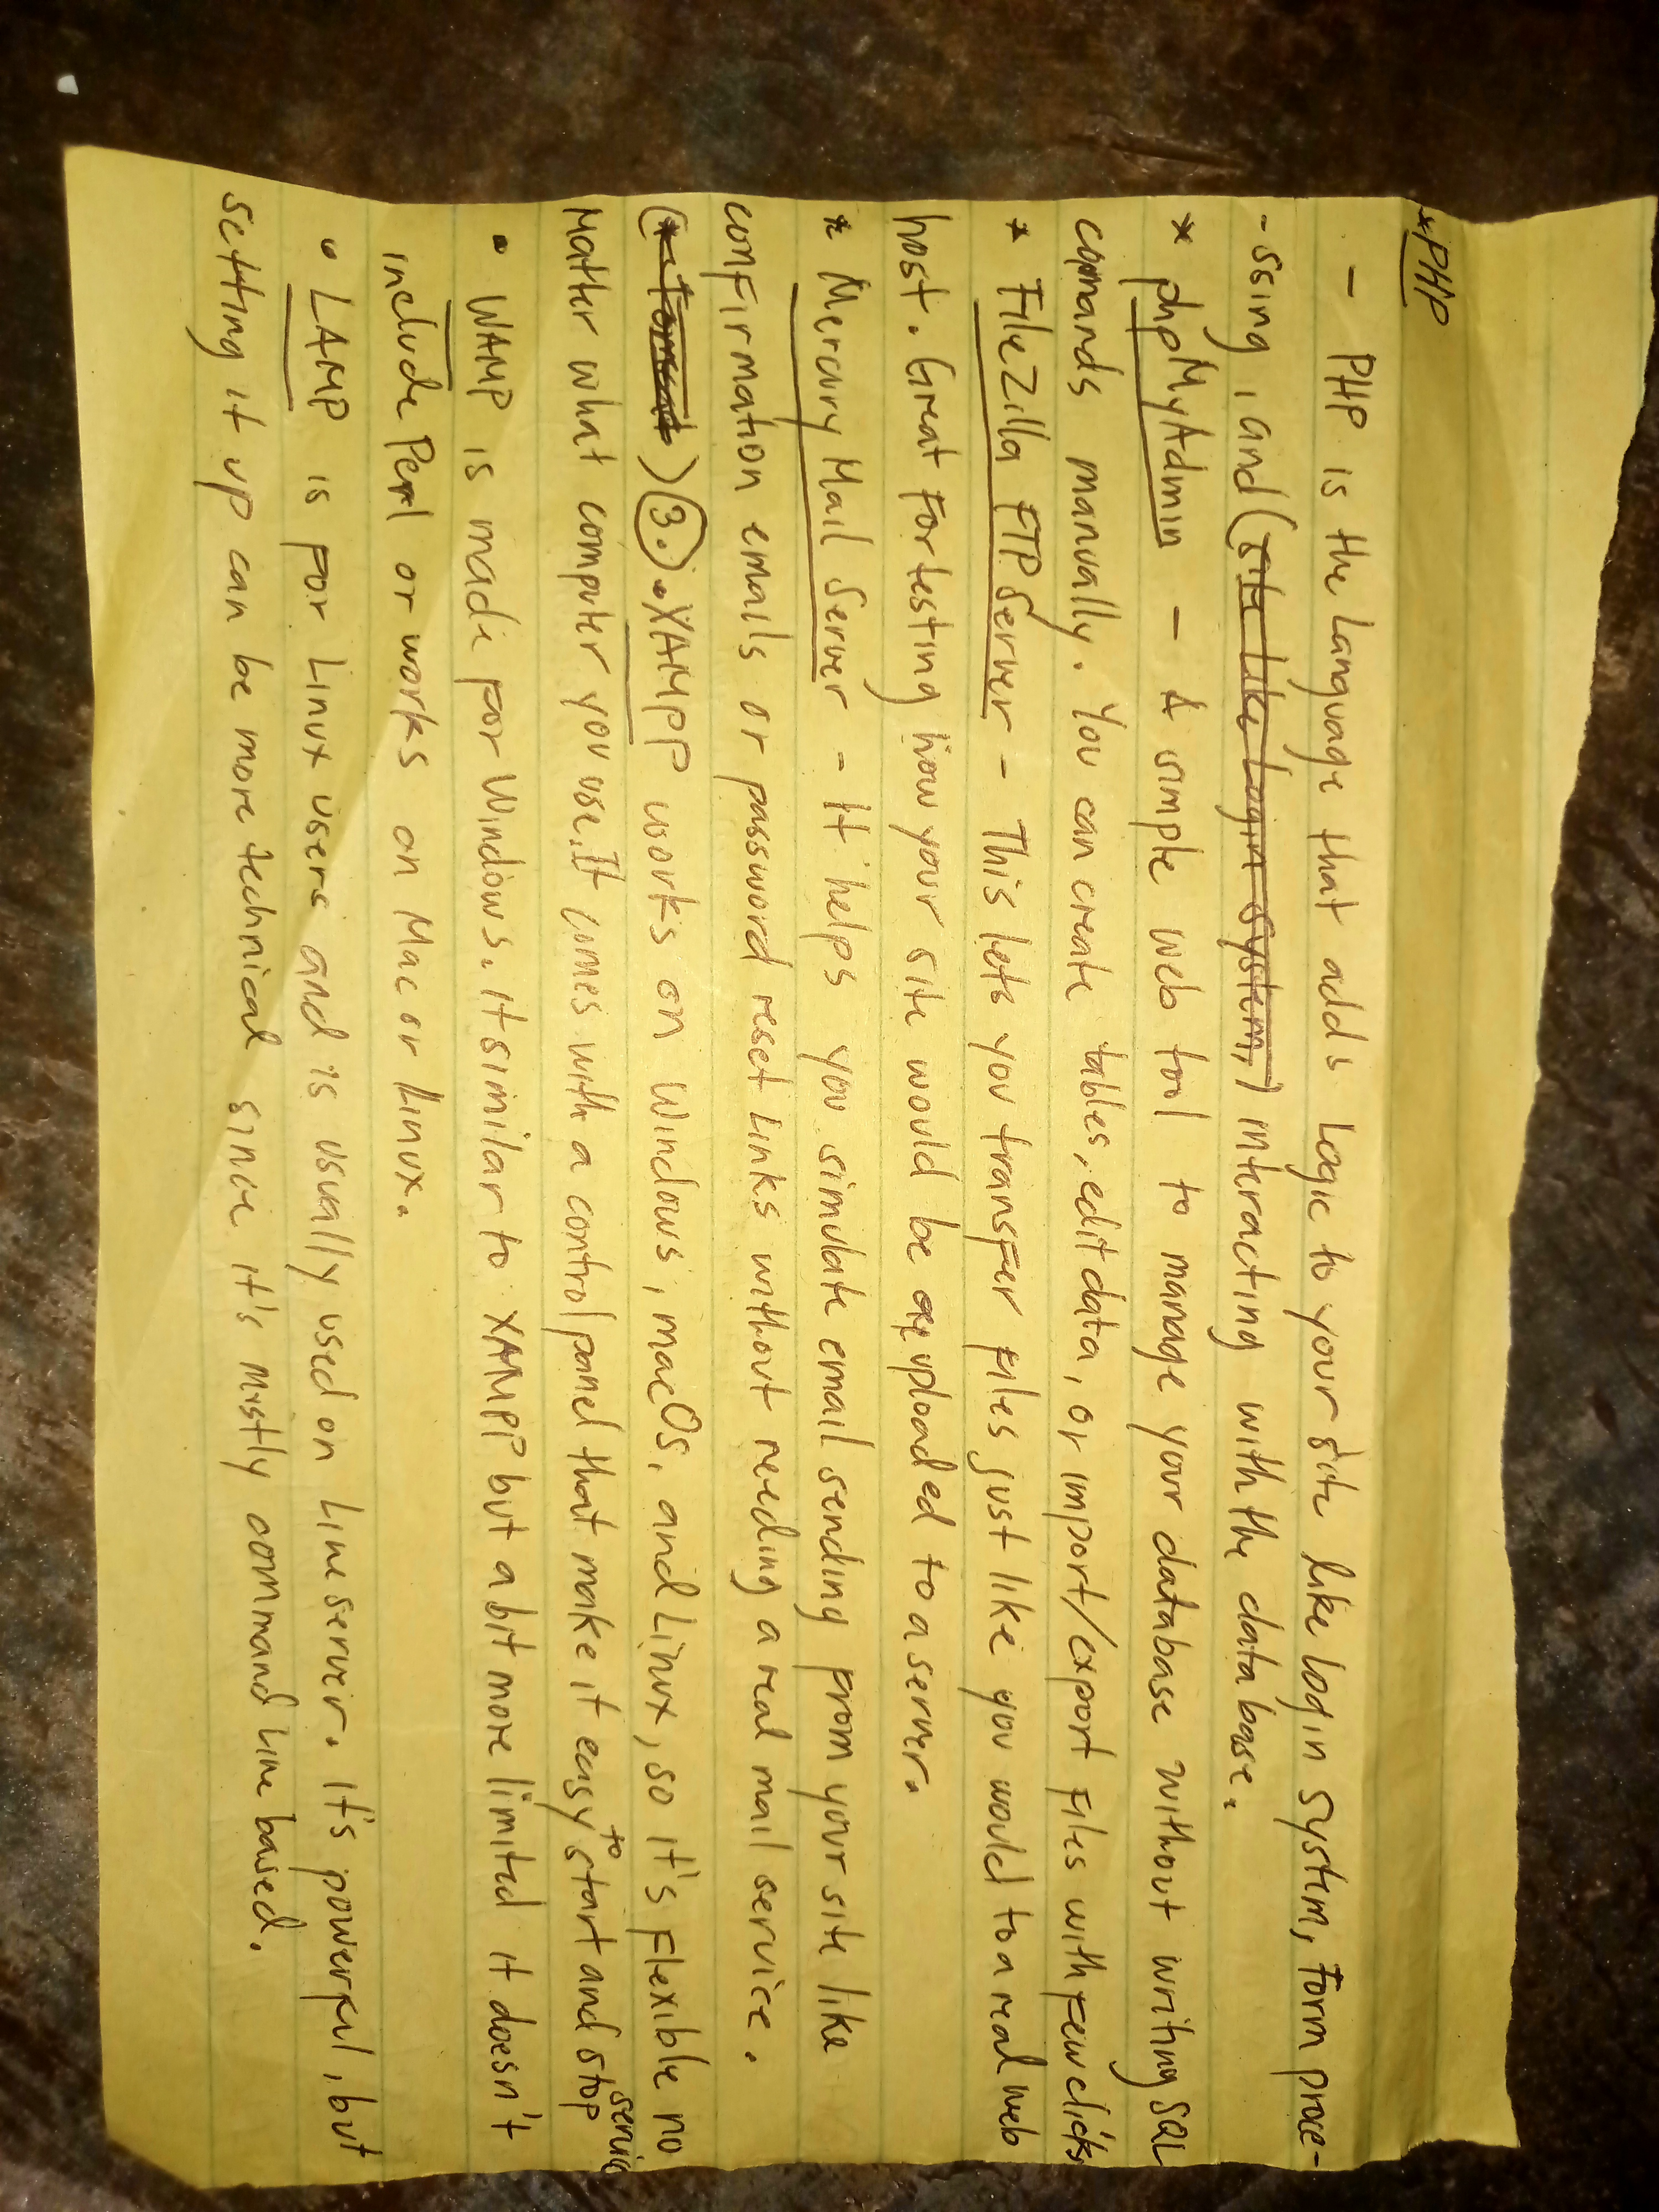 *PHP
- PHP is the Language that adds Logic to your site like login system, Form proce-
-ssing, and (site like Login system,) interacting with the database.
* phpMyAdmin - A simple web tool to manage your database without writing SQL
comands manually. You can create tables, edit data, or import/export files with few clicks
* FileZilla FTP Server - This lets you transfer files just like you would to a real web
host. Great for testing how your site would be uploaded to a server.
* Mercury Mail Server - It helps you simulate email sending from your site like
confirmation emails or password reset Links without needing a real mail service.
(* Tomcat) 3. . XAMPP works on Windows, macOs, and Linux, so it's flexible no
Matter what computer you use. It comes with a control panel that make it easy to start and stop servic
• WAMP is made for Windows. it similar to XAMPP but a bit more limited it doesn't
include Perl or works on Mac or Linux.
• LAMP is for Linux users and is usually used on Line server. it's powerful, but
setting it up can be more technical since it's mostly command line based.